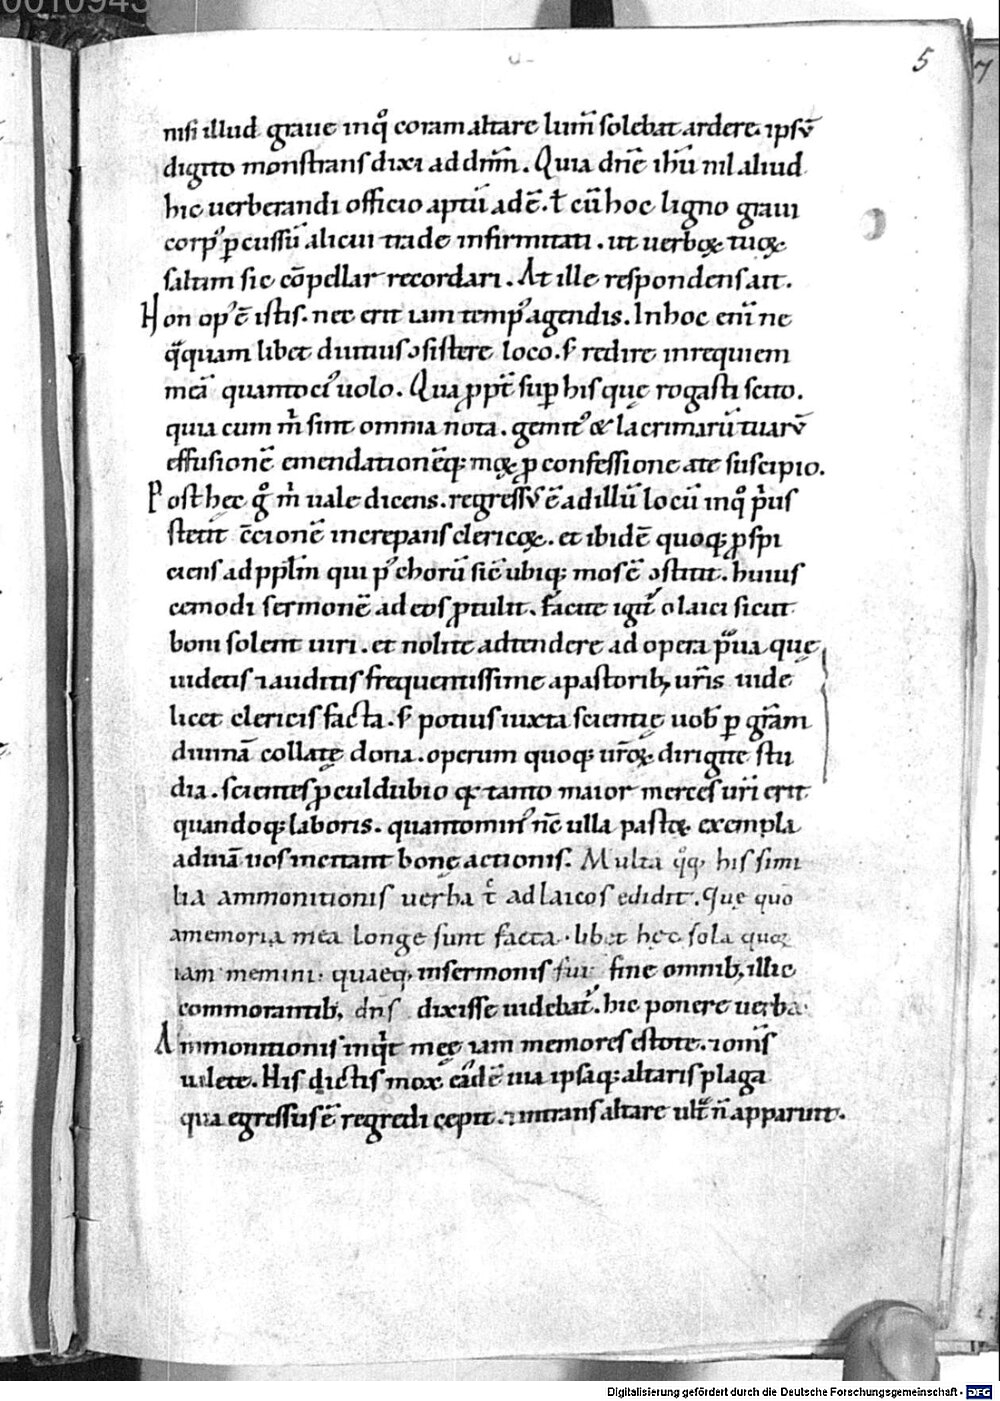 5
7
nisi illud graue inq̊ coram altare lum̄ solebat ardere. ipsū
digito monstrans dixi ad dnm̄. Quia dnē ihū nil aliud
hic uerberandi officio aptū adē. ł cū hoc ligno graui
corpꝰ ꝑcussū alicui trade infirmitati. ut uerboꝝ tuoꝝ
saltim sic cōpellar recordari. At ille respondens ait.
Non opꝰ ē istis. nec erit iam tempꝰ agendis. In hoc eni̅ ne
q̄quam libet diutius ↄsistere loco. s; redire in requiem
meā quantociꝰ uolo. Qua ꝓpt̄ suꝑ his quę rogasti scito.
quia cum m̊ sint omnia nota. gemitꝰ & lacrimarū tuarū
effusionē emendationēq; moꝝ ꝓ confessione a te suscipio.
Post hęc g̊ m̊ uale dicens. regressus ē ad illū locū inq̊ p̊us
stetit c̄cionē increpans clericoꝝ. et ibidē quoq; ꝓspi
ciens ad pplm̄ qui pꝰ chorū sic̄ ubiq; mos ē ↄstitit. huius
cemodi sermonē ad eos ꝓtulit. facite igit̄ o laici sicut
boni solent uiri. et nolite adtendere ad opera p̄ua quę
uidetis ⁊ auditis frequentissime a pastorib; ur̄is uide
licet clericis facta. s; potius iuxta scientię uob̄ ꝑ grām
diuinā collatę dona. operum quoq; ur̄oꝝ dirigite stu
dia. scientes ꝓculdubio qđ tanto maior merces ur̄i erit
quandoq; laboris. quanto minꝰ nc̄ ulla pastoꝝ exempla
ad uiā uos incitant bonę actionis. Multa q̊q; his simi
lia ammonitionis uerba t̄ ad laicos edidit. Quę quo
a memoria mea longe sunt facta. libet hęc sola quoꝝ
iam memini. quaeq; in sermonis sui fine omnib; illic
commorantib; dn̄s dixisse uidebat̄. hic ponere uerba.
Ammonitionis inqͥt meę iam memores estote. ⁊ om̄s
ualete. His dictis mox eādē uia ipsaq; altaris plaga
qua egressus ē regredi cępit. ⁊ intrans altare ult̄ n̄ apparuit.
Digitalisierung gefördert durch die Deutsche Forschungsgemeinschaft - DFG